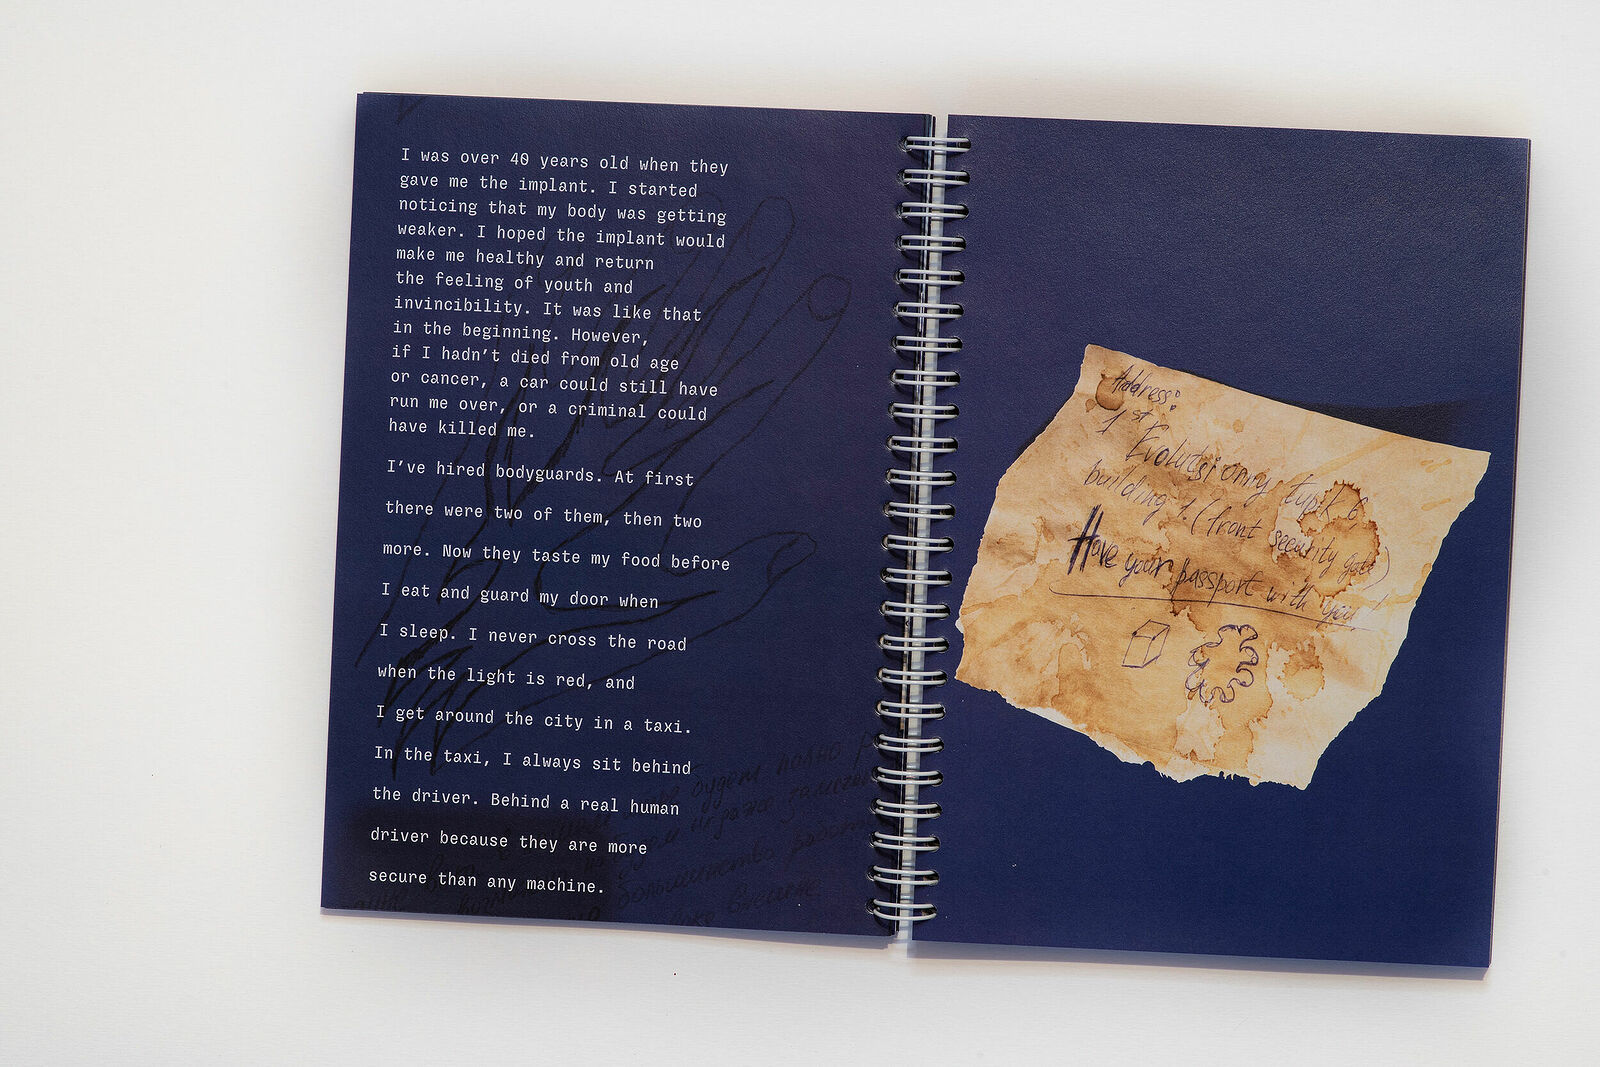 I was over 40 years old when they
gave me the implant. I started
noticing that my body was getting
weaker. I hoped the implant would
make me healthy and return
the feeling of youth and
invincibility. It was like that
in the beginning. However,
if I hadn't died from old age
or cancer, a car could still have
run me over, or a criminal could
have killed me.
I've hired bodyguards. At first
there were two of them, then two
more. Now they taste my food before
I eat and guard my door when
I sleep. I never cross the road
when the light is red, and
I get around the city in a taxi.
In the taxi, I always sit behind
the driver. Behind a real human
driver because they are more
secure than any machine.
будет полно
большинство
Address:
1st Evolutsionny tupik 6,
building 1. (front security gate)
Have your passport with you!